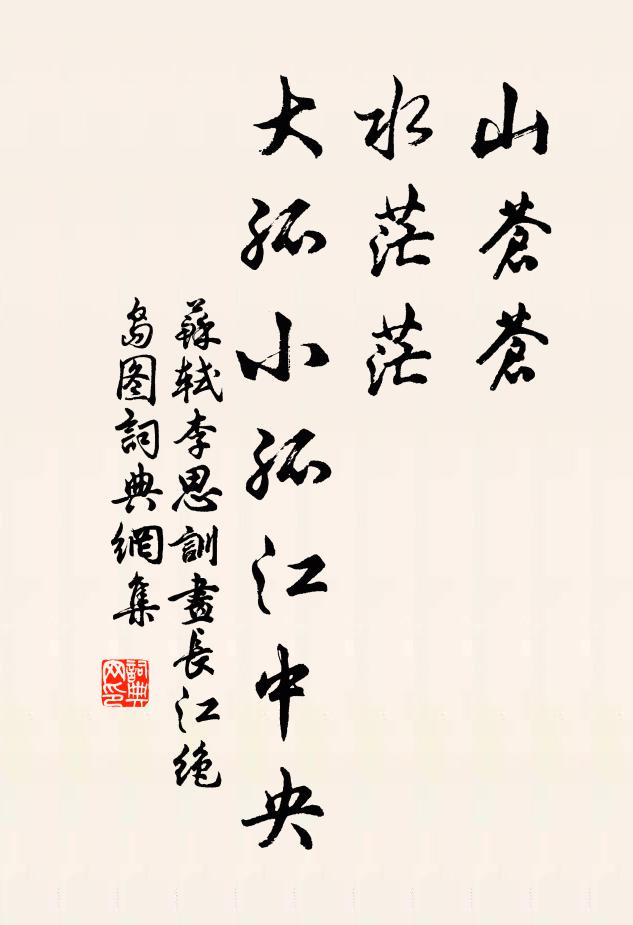 山蒼蒼
水茫茫
大孤小孤江中央
蘇軾李思訓畫長江绝
島图詞典網集
詞典
网印